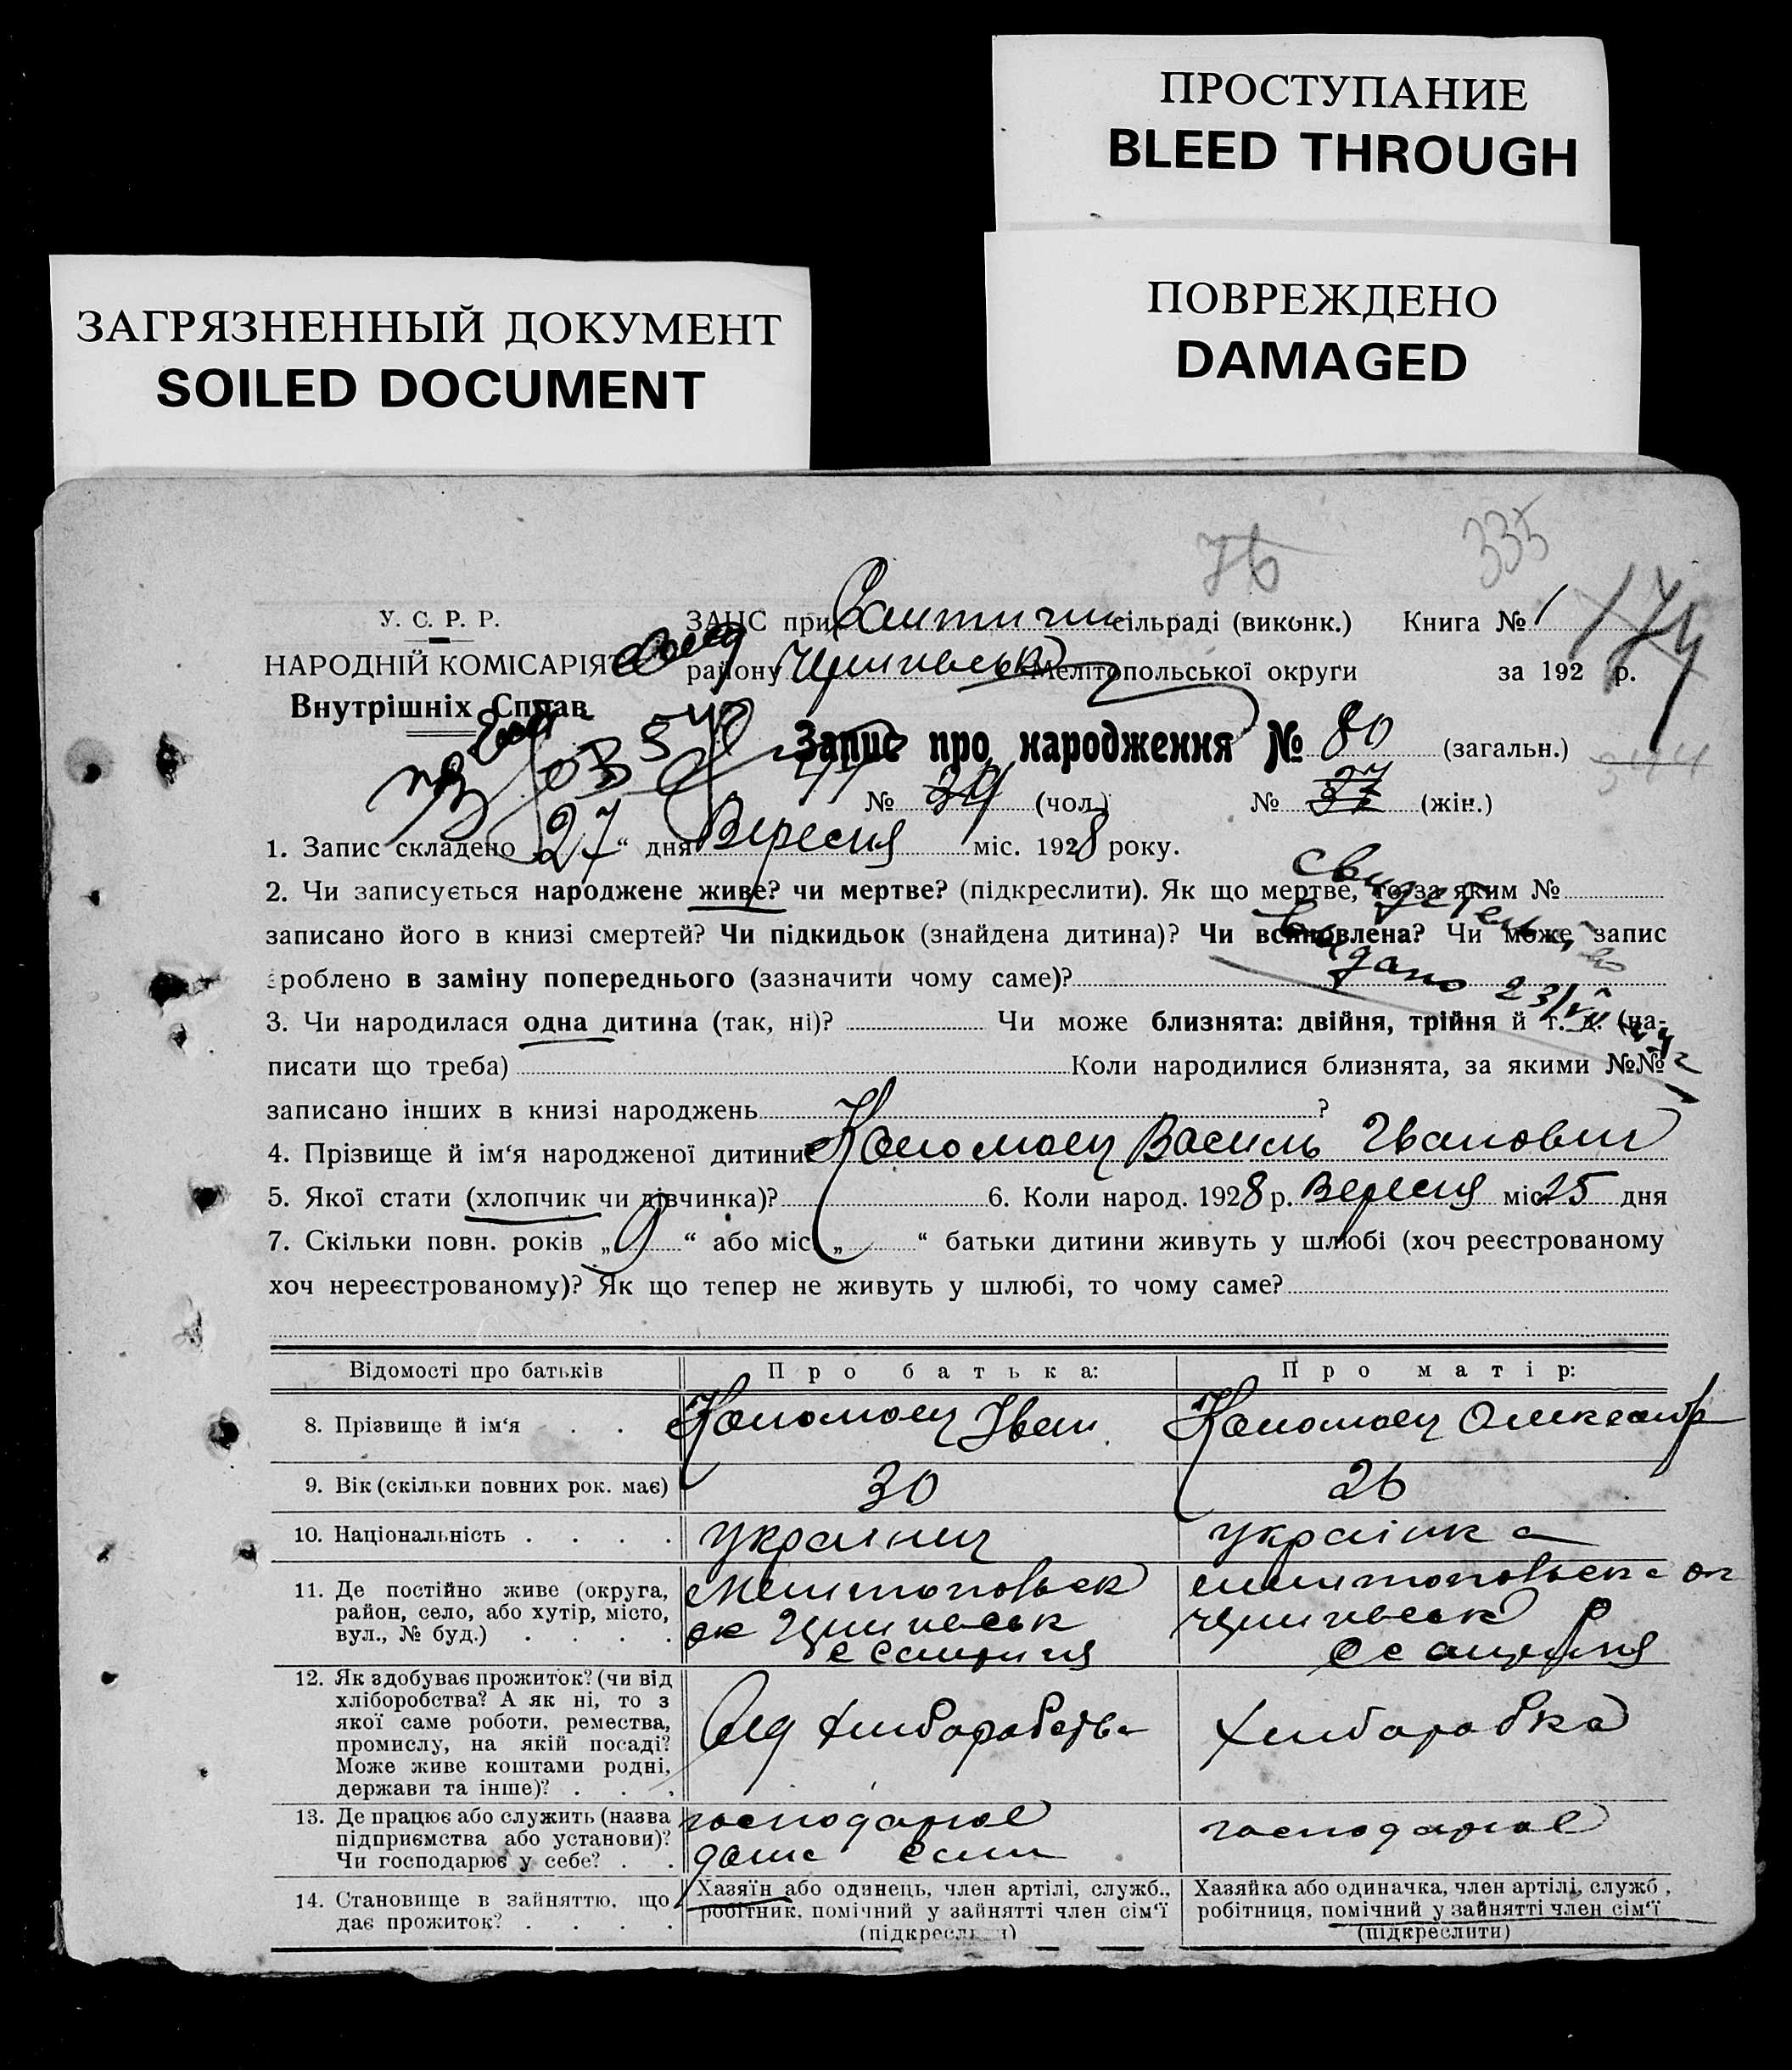 ПРОСТУПАНИЕ
BLEED THROUGH
ЗАГРЯЗНЕННЫЙ ДОКУМЕНТ
SOILED DOCUMENT
ПОВРЕЖДЕНО
DAMAGED
76
335
174
У. С. Р. Р.
НАРОДНІЙ КОМІСАРІЯТ
Внутрішніх Справ
ЗАГС при сільраді (виконк.) Книга № 1
району Мелітопольської округи за 192 р.
Запис про народження № 80 (загальн.)
344
№ (чол.) № 37 (жін.)
1. Запис складено „27“ дня Вересня міс. 1928 року.
2. Чи записується народжене живе? чи мертве? (підкреслити). Як що мертве, то за яким №
записано його в книзі смертей? Чи підкидьок (знайдена дитина)? Чи всиновлена? Чи може запис
зроблено в заміну попереднього (зазначити чому саме)?
свидетельство
выдано 23/VII
3. Чи народилася одна дитина (так, ні)? Чи може близнята: двійня, трійня й т. д. (на-
писати що треба) Коли народилися близнята, за якими №№
записано інших в книзі народжень ?
4. Прізвище й ім‘я народженої дитини Коломоец Василь Іванович
5. Якої стати (хлопчик чи дівчинка)? 6. Коли народ. 1928 р. Вересня міс. 25 дня
7. Скільки повн. років „9“ або міс. „ “ батьки дитини живуть у шлюбі (хоч реєстрованому
хоч нереєстрованому)? Як що тепер не живуть у шлюбі, то чому саме?
Відомості про батьків Про батька: Про матір:
8. Прізвище й ім‘я . . Коломоец Іван Коломоец Олександр
9. Вік (скільки повних рок. має) 30 26
10. Національність . . . . українец українка
11. Де постійно живе (округа,
район, село, або хутір, місто,
вул., № буд.) . . . .
Мелитопольск
ок
мелитопольска ок
12. Як здобуває прожиток? (чи від
хліборобства? А як ні, то з
якої саме роботи, ремества,
промислу, на якій посаді?
Може живе коштами родні,
держави та інше)? . . .
Від хлиборобства
хлиборобка
13. Де працює або служить (назва
підприємства або установи)?
Чи господарює у себе? . .
господарює
господарює
14. Становище в зайняттю, що
дає прожиток? . . . .
Хазяїн або одинець, член артілі, служб.,
робітник, помічний у зайнятті член сім‘ї
(підкреслити)
Хазяйка або одиначка, член артілі, служб.,
робітниця, помічний у зайнятті член сім‘ї
(підкреслити)